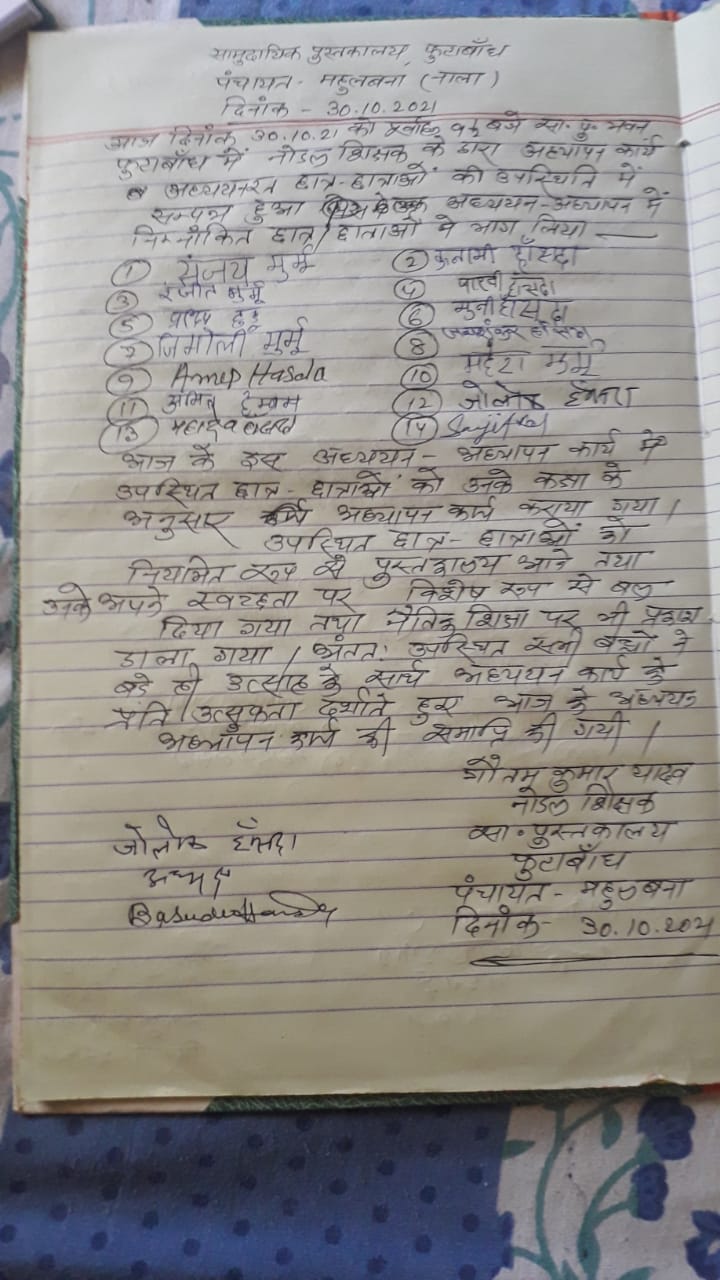 सामुदायिक पुस्तकालय, फुटाबाँध
पंचायत- महुलबना (नाला)
दिनांक - 30.10.2021
आज दिनांक 30.10.21 को पूर्वाह्न बजे सा॰ पु॰ भवन
फुटाबाँध में नोडल शिक्षक के द्वारा अध्यापन कार्य
अध्ययनरत छात्र-छात्राओं की उपस्थिति में
सम्पन्न हुआ अध्ययन-अध्यापन में
निम्नांकित छात्र/छात्राओं ने भाग लिया —
① संजय मुर्मू ② हाँसदा
③ रंजीत मुर्मू ④ हाँसदा
⑤ टुडू ⑥ मुनी हाँसदा
⑦ मुर्मू ⑧
⑨ Hasda ⑩ महेश मुर्मू
⑪ हेम्ब्रम ⑫ हाँसदा
⑬ महादेव ⑭
आज के इस अध्ययन- अध्यापन कार्य में
उपस्थित छात्र- छात्राओं को उनके कक्षा के
अनुसार अध्यापन कार्य कराया गया।
उपस्थित छात्र- छात्राओं को
नियमित रूप से पुस्तकालय आने तथा
उनके अपने स्वच्छता पर विशेष रूप से बल
दिया गया तथा नैतिक शिक्षा पर भी प्रकाश
डाला गया। अंततः उपस्थित सभी बच्चों ने
बड़े ही उत्साह के साथ अध्ययन कार्य के
प्रति उत्सुकता दर्शाते हुए आज के अध्ययन
अध्यापन कार्य की समाप्ति की गयी।
गौतम कुमार यादव
नोडल शिक्षक
सा॰ पुस्तकालय
फुटाबाँध
पंचायत- महुलबना
दिनांक- 30.10.2021
हाँसदा
अध्यक्ष